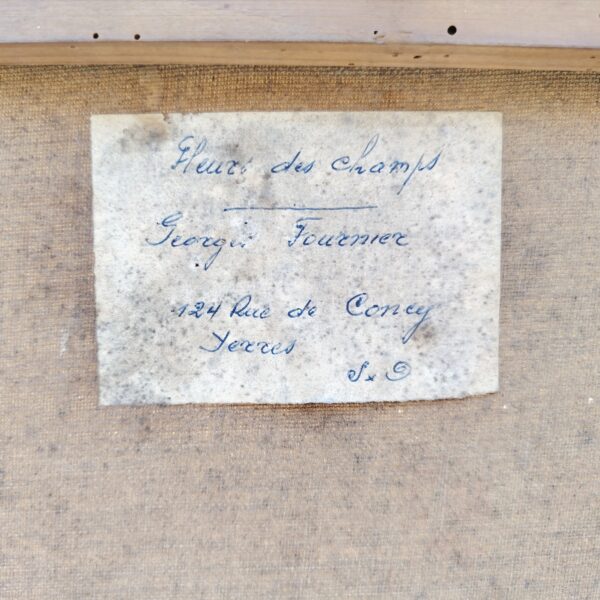 Fleurs des champs
Georgie Fournier
124 Rue de Concy
Yerres
S. & O